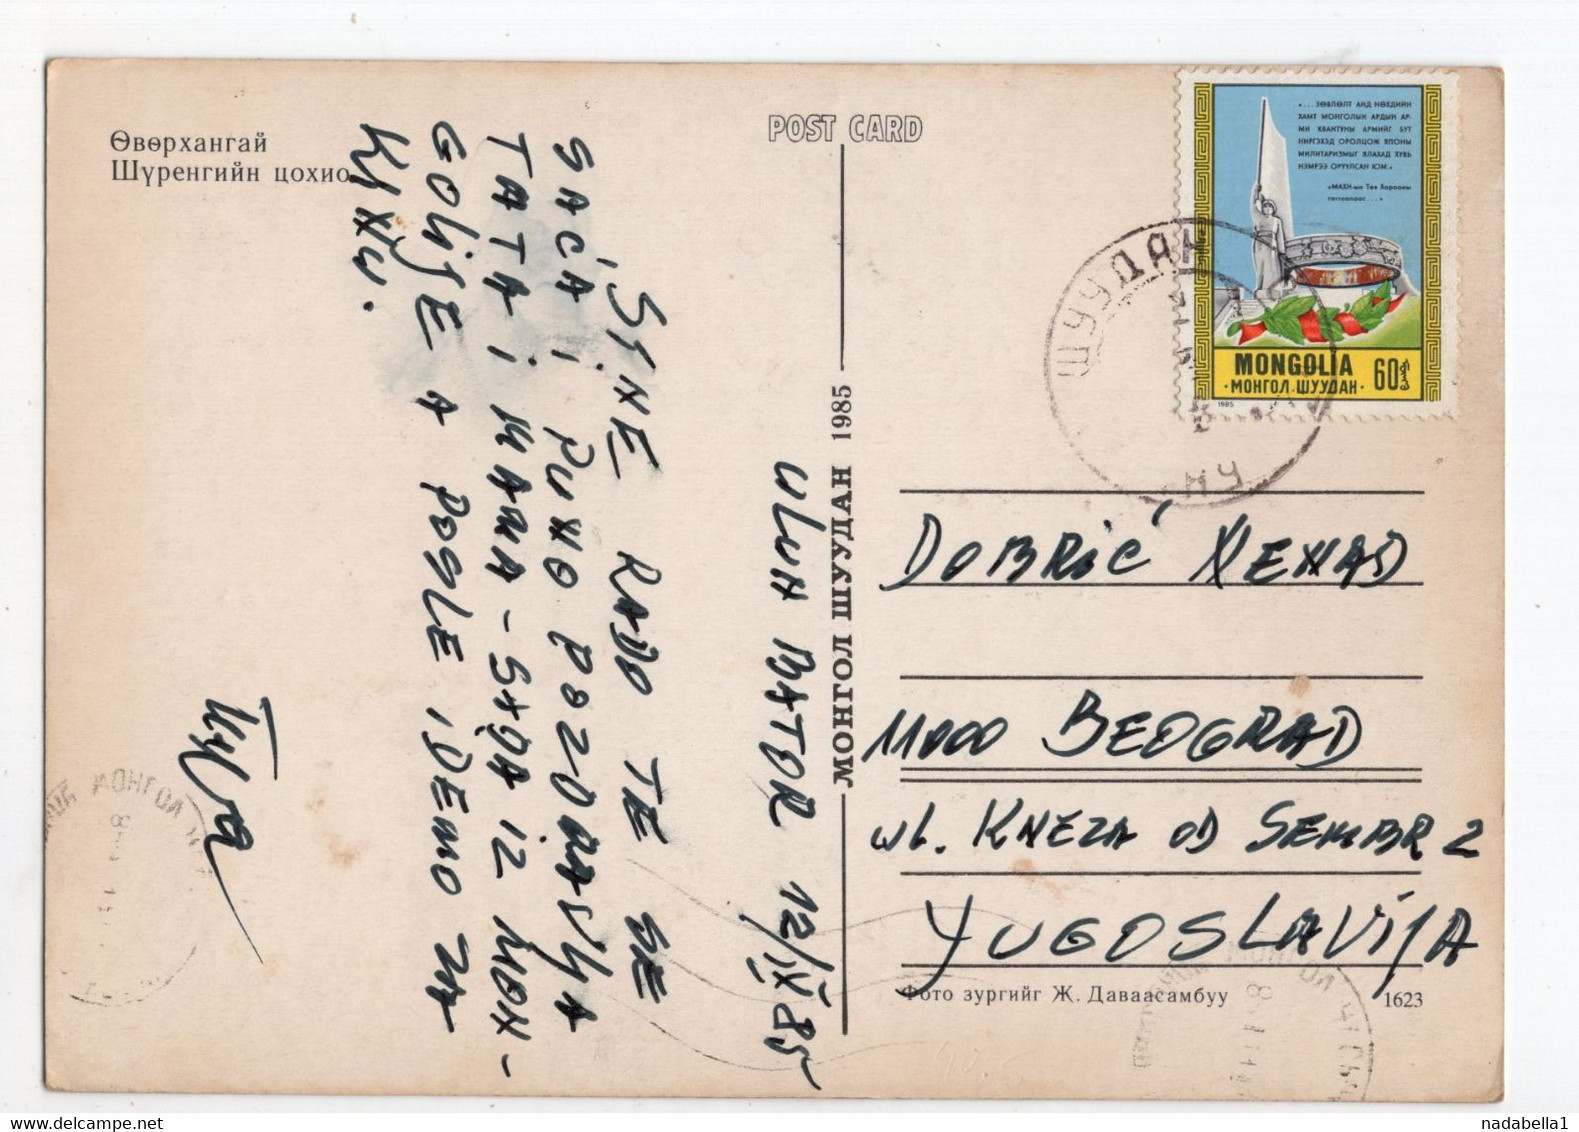 Өвөрхангай
Шүренгийн цохио
POST CARD
«... ЗӨВЛӨЛТ АНД НӨХДИЙН
ХАМТ МОНГОЛЫН АРДЫН АР-
МИ КВАНТУНЫ АРМИЙГ БУТ
НИРГЭХЭД ОРОЛЦОЖ ЯПОНЫ
МИЛИТАРИЗМЫГ ЯЛАХАД ХУВЬ
НЭМРЭЭ ОРУУЛСАН ЮМ.»
«МАХН-ын Төв Хорооны
тогтоолоос...»
MONGOLIA
МОНГОЛ ШУУДАН
60
1985
ШУУДАН
МОНГОЛ ШУУДАН 1985
ULUN BATOR 12/IX 85
SINE RADO TE SE
SAĆA I PUNO POZDRAVLJA
TATA I MAMA - SADA IZ MON-
GOLIJE A POSLE IDEMO ZA
DOBRIĆ NENAD
11000 BEOGRAD
UL. KNEZA OD SEMBR 2
YUGOSLAVIJA
Фото зургийг Ж. Даваасамбуу
1623
МОНГОЛ
nadabella1